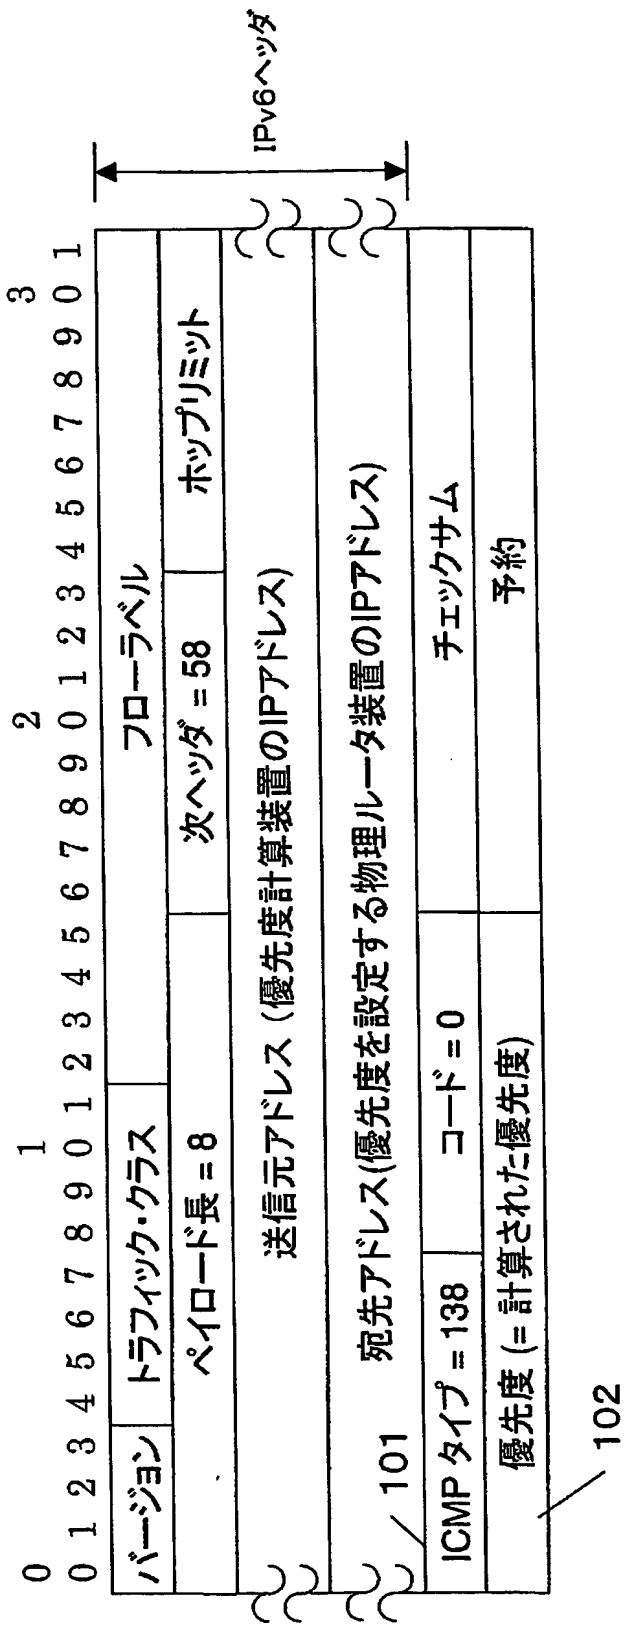 0 1 2 3
0 1 2 3 4 5 6 7 8 9 0 1 2 3 4 5 6 7 8 9 0 1 2 3 4 5 6 7 8 9 0 1
バージョン トラフィック・クラス フローラベル
ペイロード長 = 8 次ヘッダ = 58 ホップリミット
送信元アドレス (優先度計算装置のIPアドレス)
宛先アドレス(優先度を設定する物理ルータ装置のIPアドレス)
IPv6ヘッダ
101
ICMP タイプ = 138 コード = 0 チェックサム
優先度 (= 計算された優先度) 予約
102